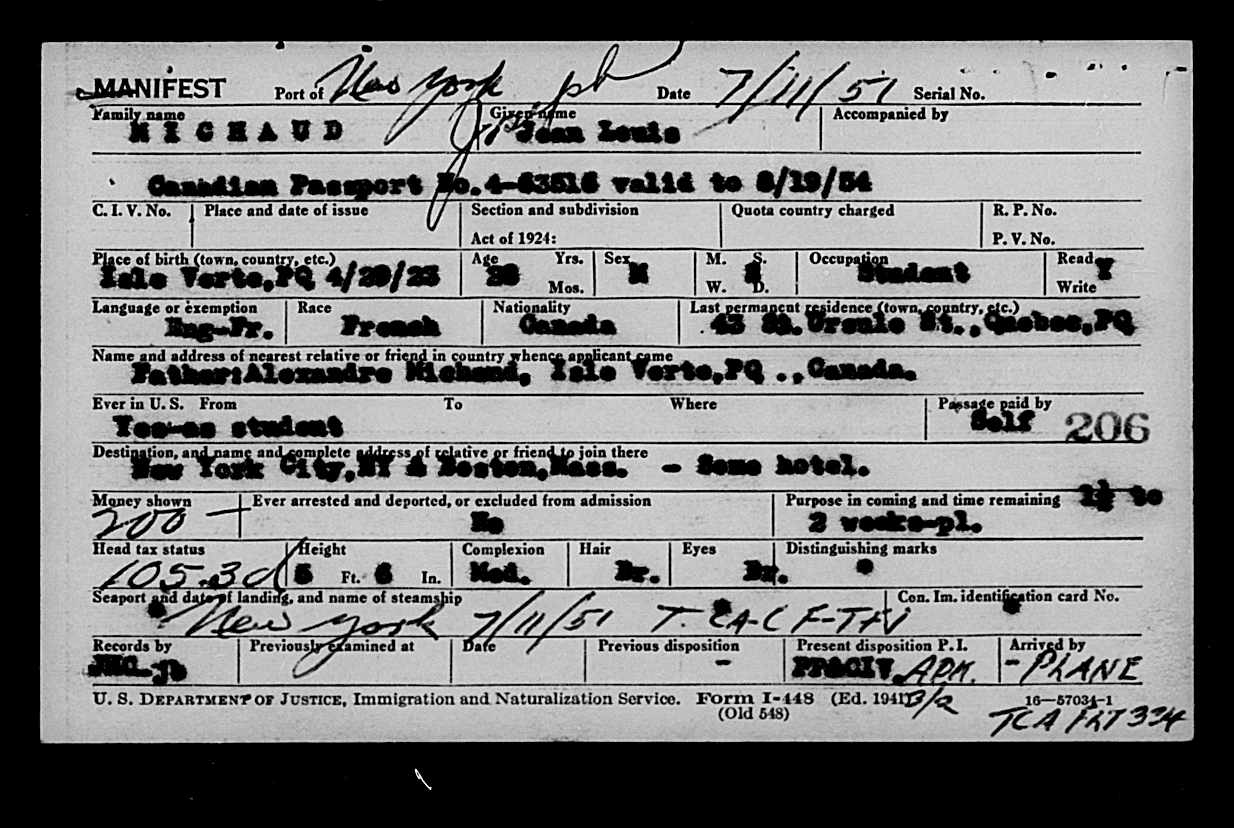 MANIFEST Port of New York, pb Date 7/11/51 Serial No.
Family name Given name Accompanied by
MICHAUD Jean Louis
Canadian Passport No.4-63516 valid to 8/19/54
C. I. V. No. Place and date of issue Section and subdivision Quota country charged R. P. No.
Act of 1924: P. V. No.
Place of birth (town, country, etc.) Age Yrs. Sex M. S. Occupation Read Y
Isle Verte,PQ 4/29/23 28 Mos. M W. D. S Student Write
Language or exemption Race Nationality Last permanent residence (town, country, etc.)
Eng-Fr. French Canada 43 St. Ursule St.,Quebec,PQ
Name and address of nearest relative or friend in country whence applicant came
Father:Alexandre Michaud, Isle Verte,PQ .,Canada.
Ever in U. S. From To Where Passage paid by
Yes-as student Self 206
Destination, and name and complete address of relative or friend to join there
New York City,NY & Boston,Mass. - Some hotel.
Money shown Ever arrested and deported, or excluded from admission Purpose in coming and time remaining 1½ to
200 No 2 weeks-pl.
Head tax status Height Complexion Hair Eyes Distinguishing marks
105.3d 5 Ft. 6 In. Med. Br. Br.
Seaport and date of landing, and name of steamship Con. Im. identification card No.
New York 7/11/51 T. CA-CF-TFV
Records by Previously examined at Date Previous disposition Present disposition P. I. Arrived by
- ADM. - PLANE
U. S. DEPARTMENT OF JUSTICE, Immigration and Naturalization Service. Form I-448 (Ed. 1941) 16—57034-1
(Old 548) TCA FLT 334